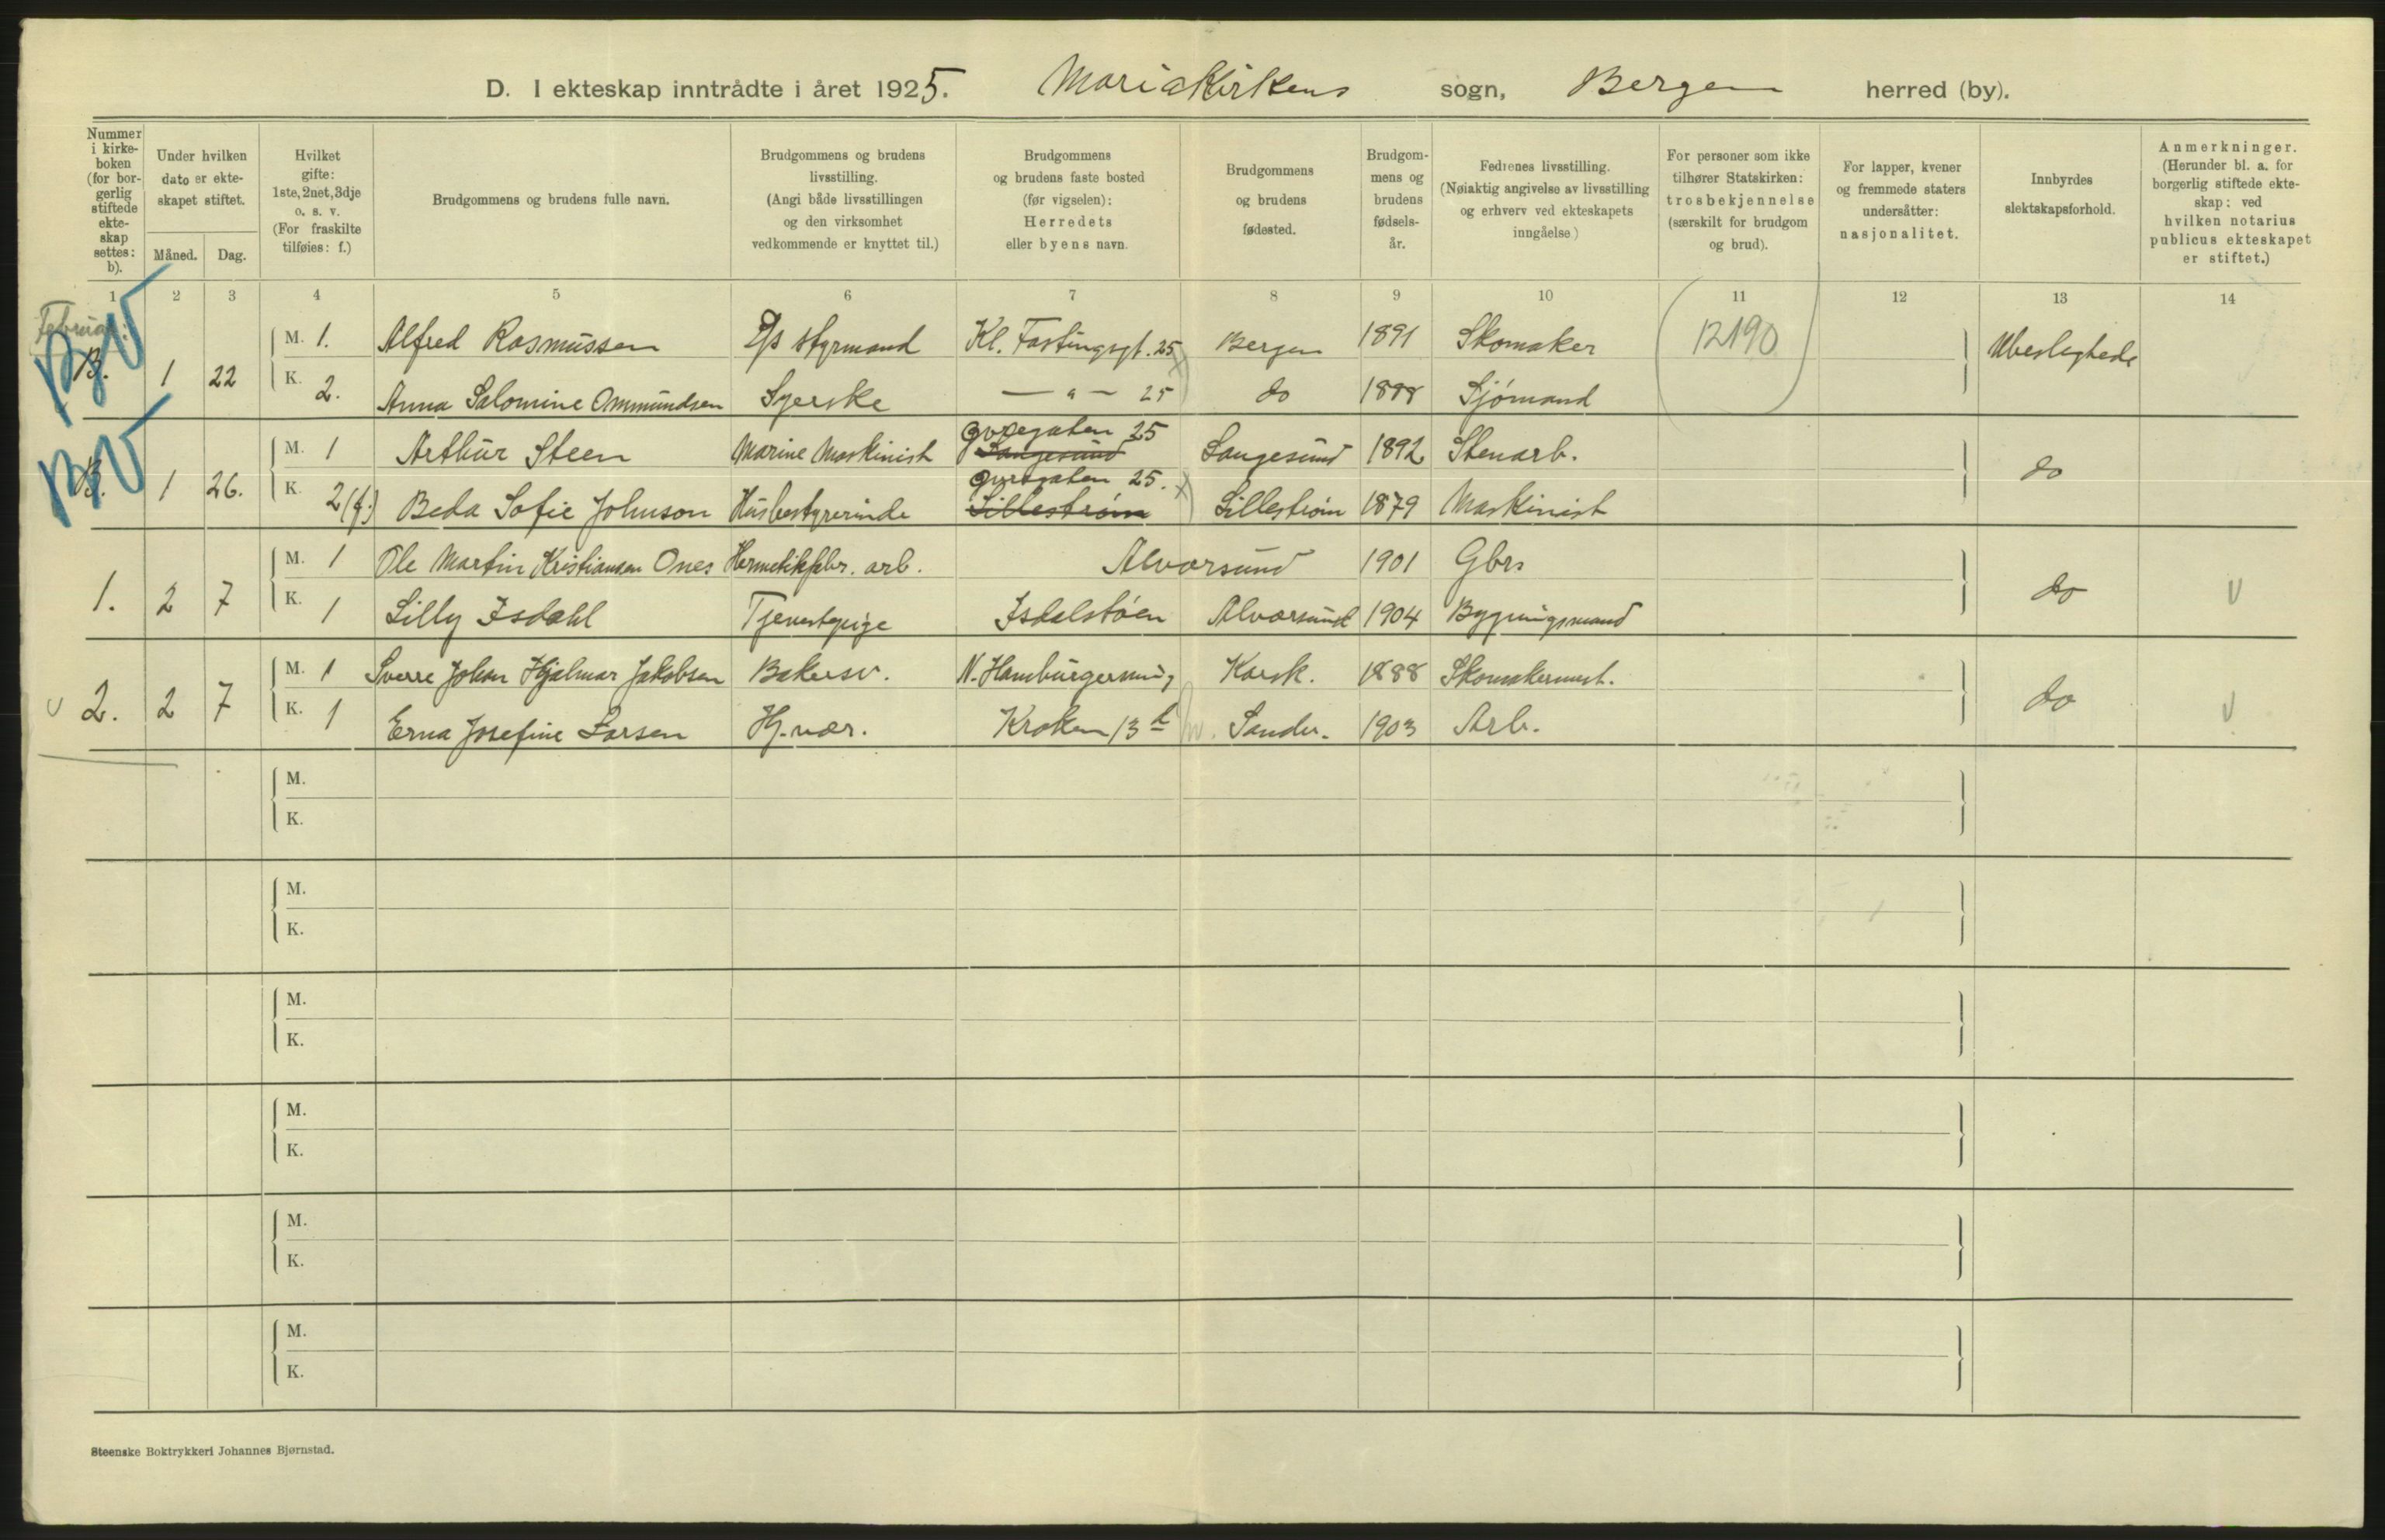 D. I ekteskap inntrådte i året 1925. Mariakirkens sogn, Bergen herred (by).
Nummer i kirke- boken (for bor- gerlig stiftede ekte- skap settes: b).
Under hvilken dato er ekte- skapet stiftet.
Måned. Dag.
Hvilket gifte: 1ste, 2net, 3dje o. s. v. (For fraskilte tilføies: f.)
Brudgommens og brudens fulle navn.
Brudgommens og brudens livsstilling. (Angi både livsstillingen og den virksomhet vedkommende er knyttet til.)
Brudgommens og brudens faste bosted (før vigselen): Herredets eller byens navn.
Brudgommens og brudens fødested.
Brudgom- mens og brudens fødsels- år.
Fedrenes livsstilling. (Nøiaktig angivelse av livsstilling og erhverv ved ekteskapets inngåelse.)
For personer som ikke tilhører Statskirken: trosbekjennelse (særskilt for brudgom og brud).
For lapper, kvener og fremmede staters undersåtter: nasjonalitet.
Innbyrdes slektskapsforhold.
Anmerkninger. (Herunder bl. a. for borgerlig stiftede ekte- skap: ved hvilken notarius publicus ekteskapet er stiftet.)
1 2 3 4 5 6 7 8 9 10 11 12 13 14
Februar:
M. 1. Alfred Rasmussen D/S styrmand Kl. Fastingsgt. 25 Bergen 1891 Skomaker 12190 Ubeslegtede
B. 1 22
K. 2. Anna Salomine Ommundsen Syerske — " — 25 do 1888 Sjömand
25
M. 1 Arthur Steen Marine Maskinist Langesund Langesund 1892 Stenarb. do
25.
B. 1 26.
K. 2(f.) Beda Sofie Johnson Husbestyrerinde Lilleström Lilleström 1879 Maskinist
M. 1 Ole Martin Kristiansen Ones Hermetikfabr. arb. Alversund 1901 Gbr. do
1. 2 7
K. 1 Lilly Isdahl Tjenestepige Isdalstöen Alversund 1904 Bygningsmand
M. 1 Sverre Johan Hjalmar Jakobsen Bakersv. N. Hamburgersmug Korsk. 1888 Skomakermest. do
2. 2 7
K. 1 Erna Josefine Larsen Hj. vær. Kroken 13 b Sandv. 1903 Arb.
M.
K.
M.
K.
M.
K.
M.
K.
M.
K.
M.
K.
Steenske Boktrykkeri Johannes Bjørnstad.